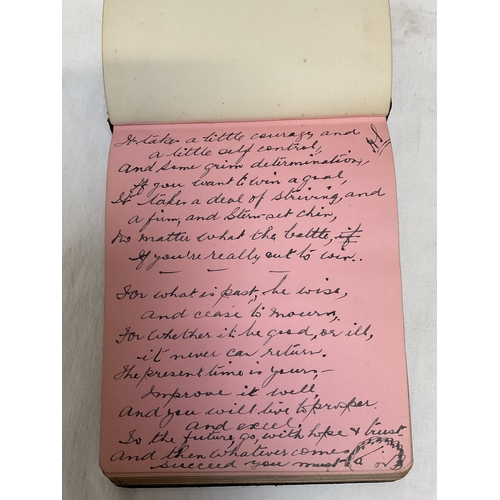 It takes a little courage and
a little self control,
And some grim determination,
If you want to win a goal,
It takes a deal of striving, and
a firm, and stern-set chin,
No matter what the battle, if
If you're really out to win..
For what is past, be wise,
and cease to mourn,
For whether it be good, or ill,
it never can return.
The present time is yours,—
Improve it well,
And you will live to prosper
and excel,
To the future, go with hope & trust
And then whatever comes
succeed you must